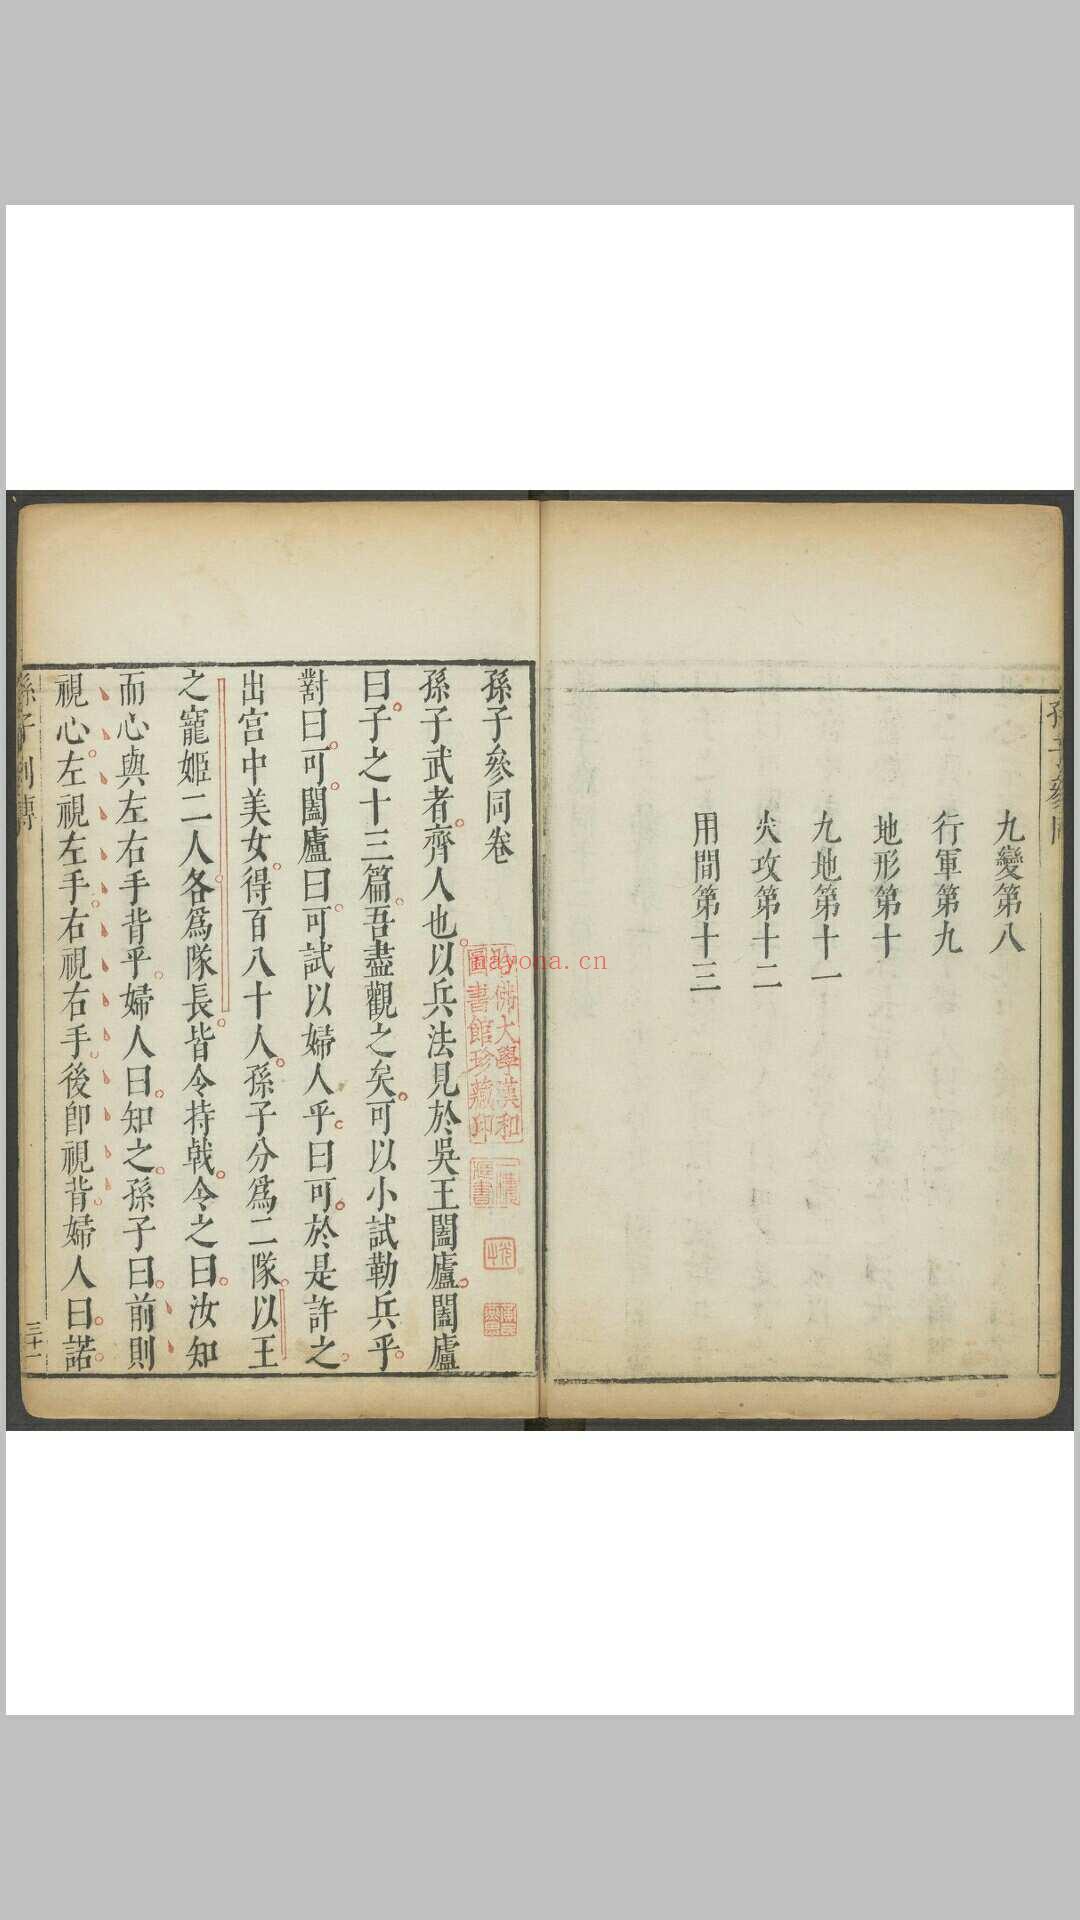 九變第八
行軍第九
地形第十
九地第十一
火攻第十二
用間第十三
孫子參同卷
孫子武者齊人也以兵法見於吳王闔廬闔廬
曰子之十三篇吾盡觀之矣可以小試勒兵乎
對曰可闔廬曰可試以婦人乎曰可於是許之
出宮中美女得百八十人孫子分爲二隊以王
之寵姬二人各爲隊長皆令持戟令之曰汝知
而心與左右手背乎婦人曰知之孫子曰前則
視心左視左手右視右手後卽視背婦人曰諾
孫子列傳
三十一
哈佛大學漢和
圖書館珍藏印
nayona.cn